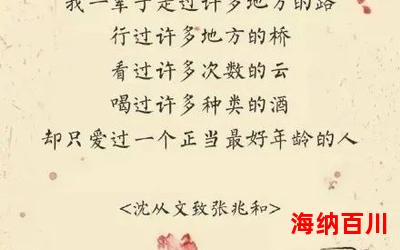 我一辈子走过许多地方的路
行过许多地方的桥
看过许多次数的云
喝过许多种类的酒
却只爱过一个正当最好年龄的人
<沈从文致张兆和>
海纳百川